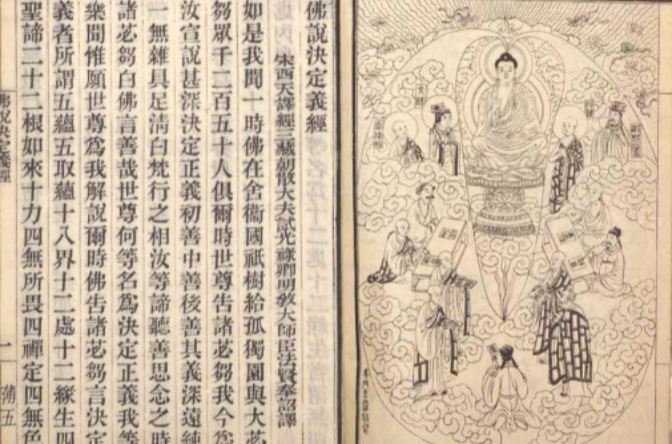 佛說決定義經
宋西天譯經三藏朝散大夫試光祿卿明教大師臣法賢奉詔譯
如是我聞一時佛在舍衛國祇樹給孤獨園與大苾
芻眾千二百五十人俱爾時世尊告諸苾芻我今為
汝宣說甚深決定正義初善中善後善其義深遠純
一無雜具足清白梵行之相汝等諦聽善思念之時
諸苾芻白佛言善哉世尊何等名為決定正義我等
樂聞惟願世尊為我解說爾時佛告諸苾芻言決定
義者所謂五蘊五取蘊十八界十二處十二緣生四
聖諦二十二根如來十力四無所畏四禪定四無色
佛說決定義經
一
薄五